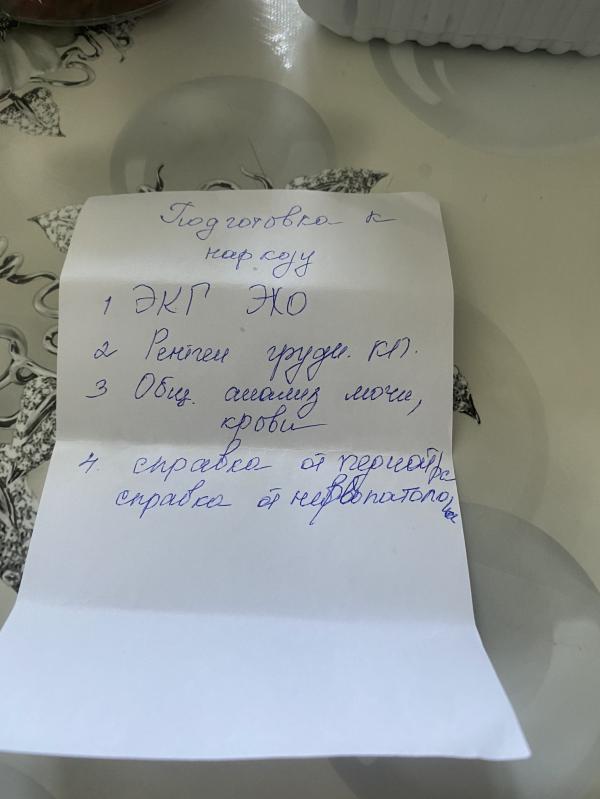 Подготовка к
наркозу
1 ЭКГ ЭХО
2 Рентген грудн. кл.
3 Общ. анализ мочи,
крови
4. справка от педиатра
справка от невропатолога